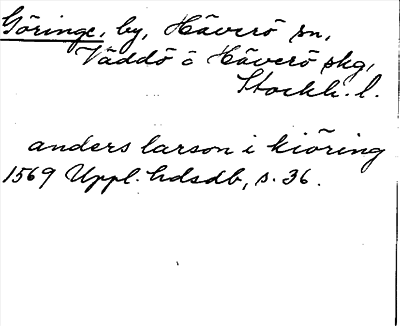 Göringe, by, Häverö sn,
Väddö o Häverö skg,
Stockh. l.
anders larson i kiöring
1569 Uppl. hdsdb, s. 36.